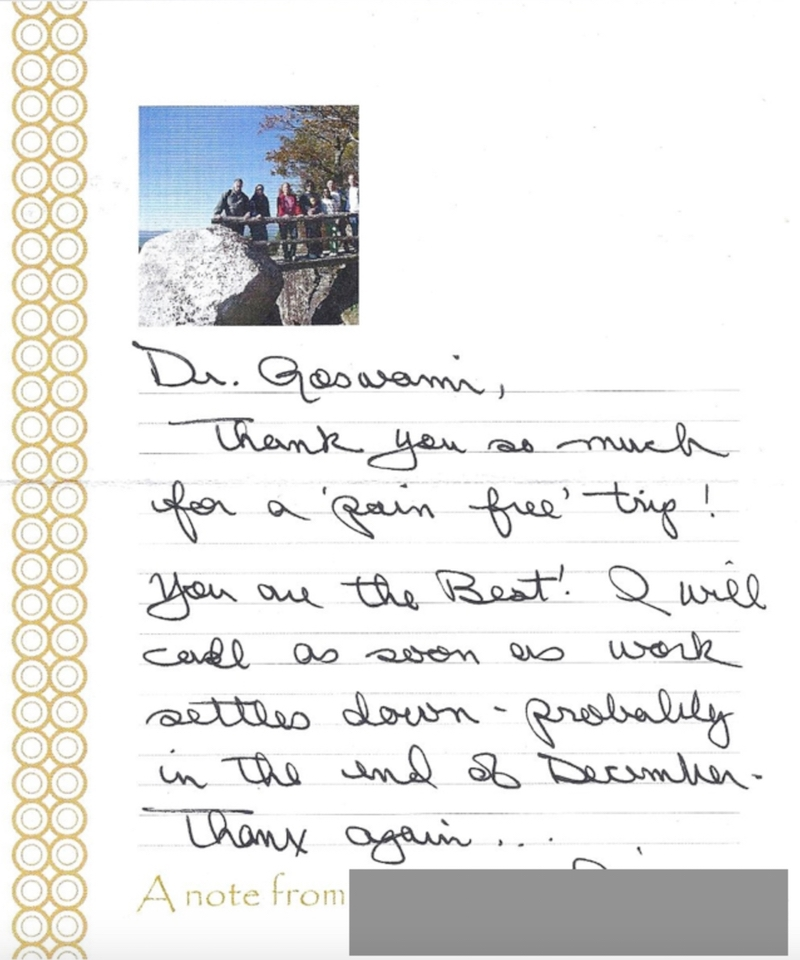 Dr. Goswami,
Thank you so much
for a 'pain free' trip!
You are the Best! I will
call as soon as work
settles down - probably
in the end of December.
Thanx again...
A note from